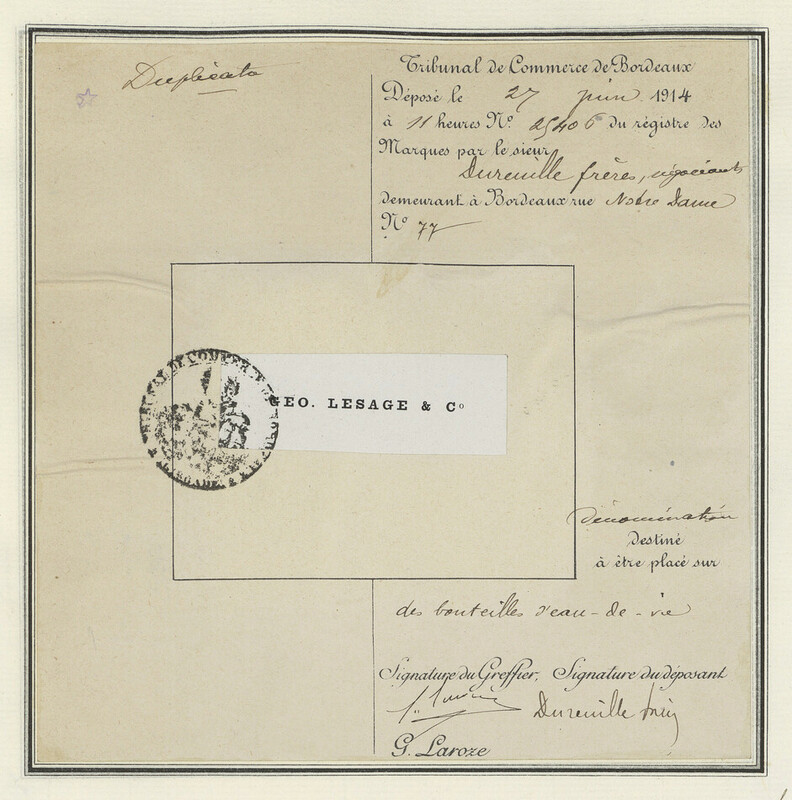 Duplicata
Tribunal de Commerce de Bordeaux
Déposé le 27 juin 1914
à 11 heures No. 25406 du régistre des
Marques par le sieur
Dureuille frères, négociants
demeurant à Bordeaux rue Notre Dame
No 77
TRIBUNAL DE COMMERCE
GEO. LESAGE & Co
dénomination
destiné
à être placé sur
des bouteilles d'eau-de-vie
Signature du Greffier, Signature du déposant
Dureuille frères
G. Laroze